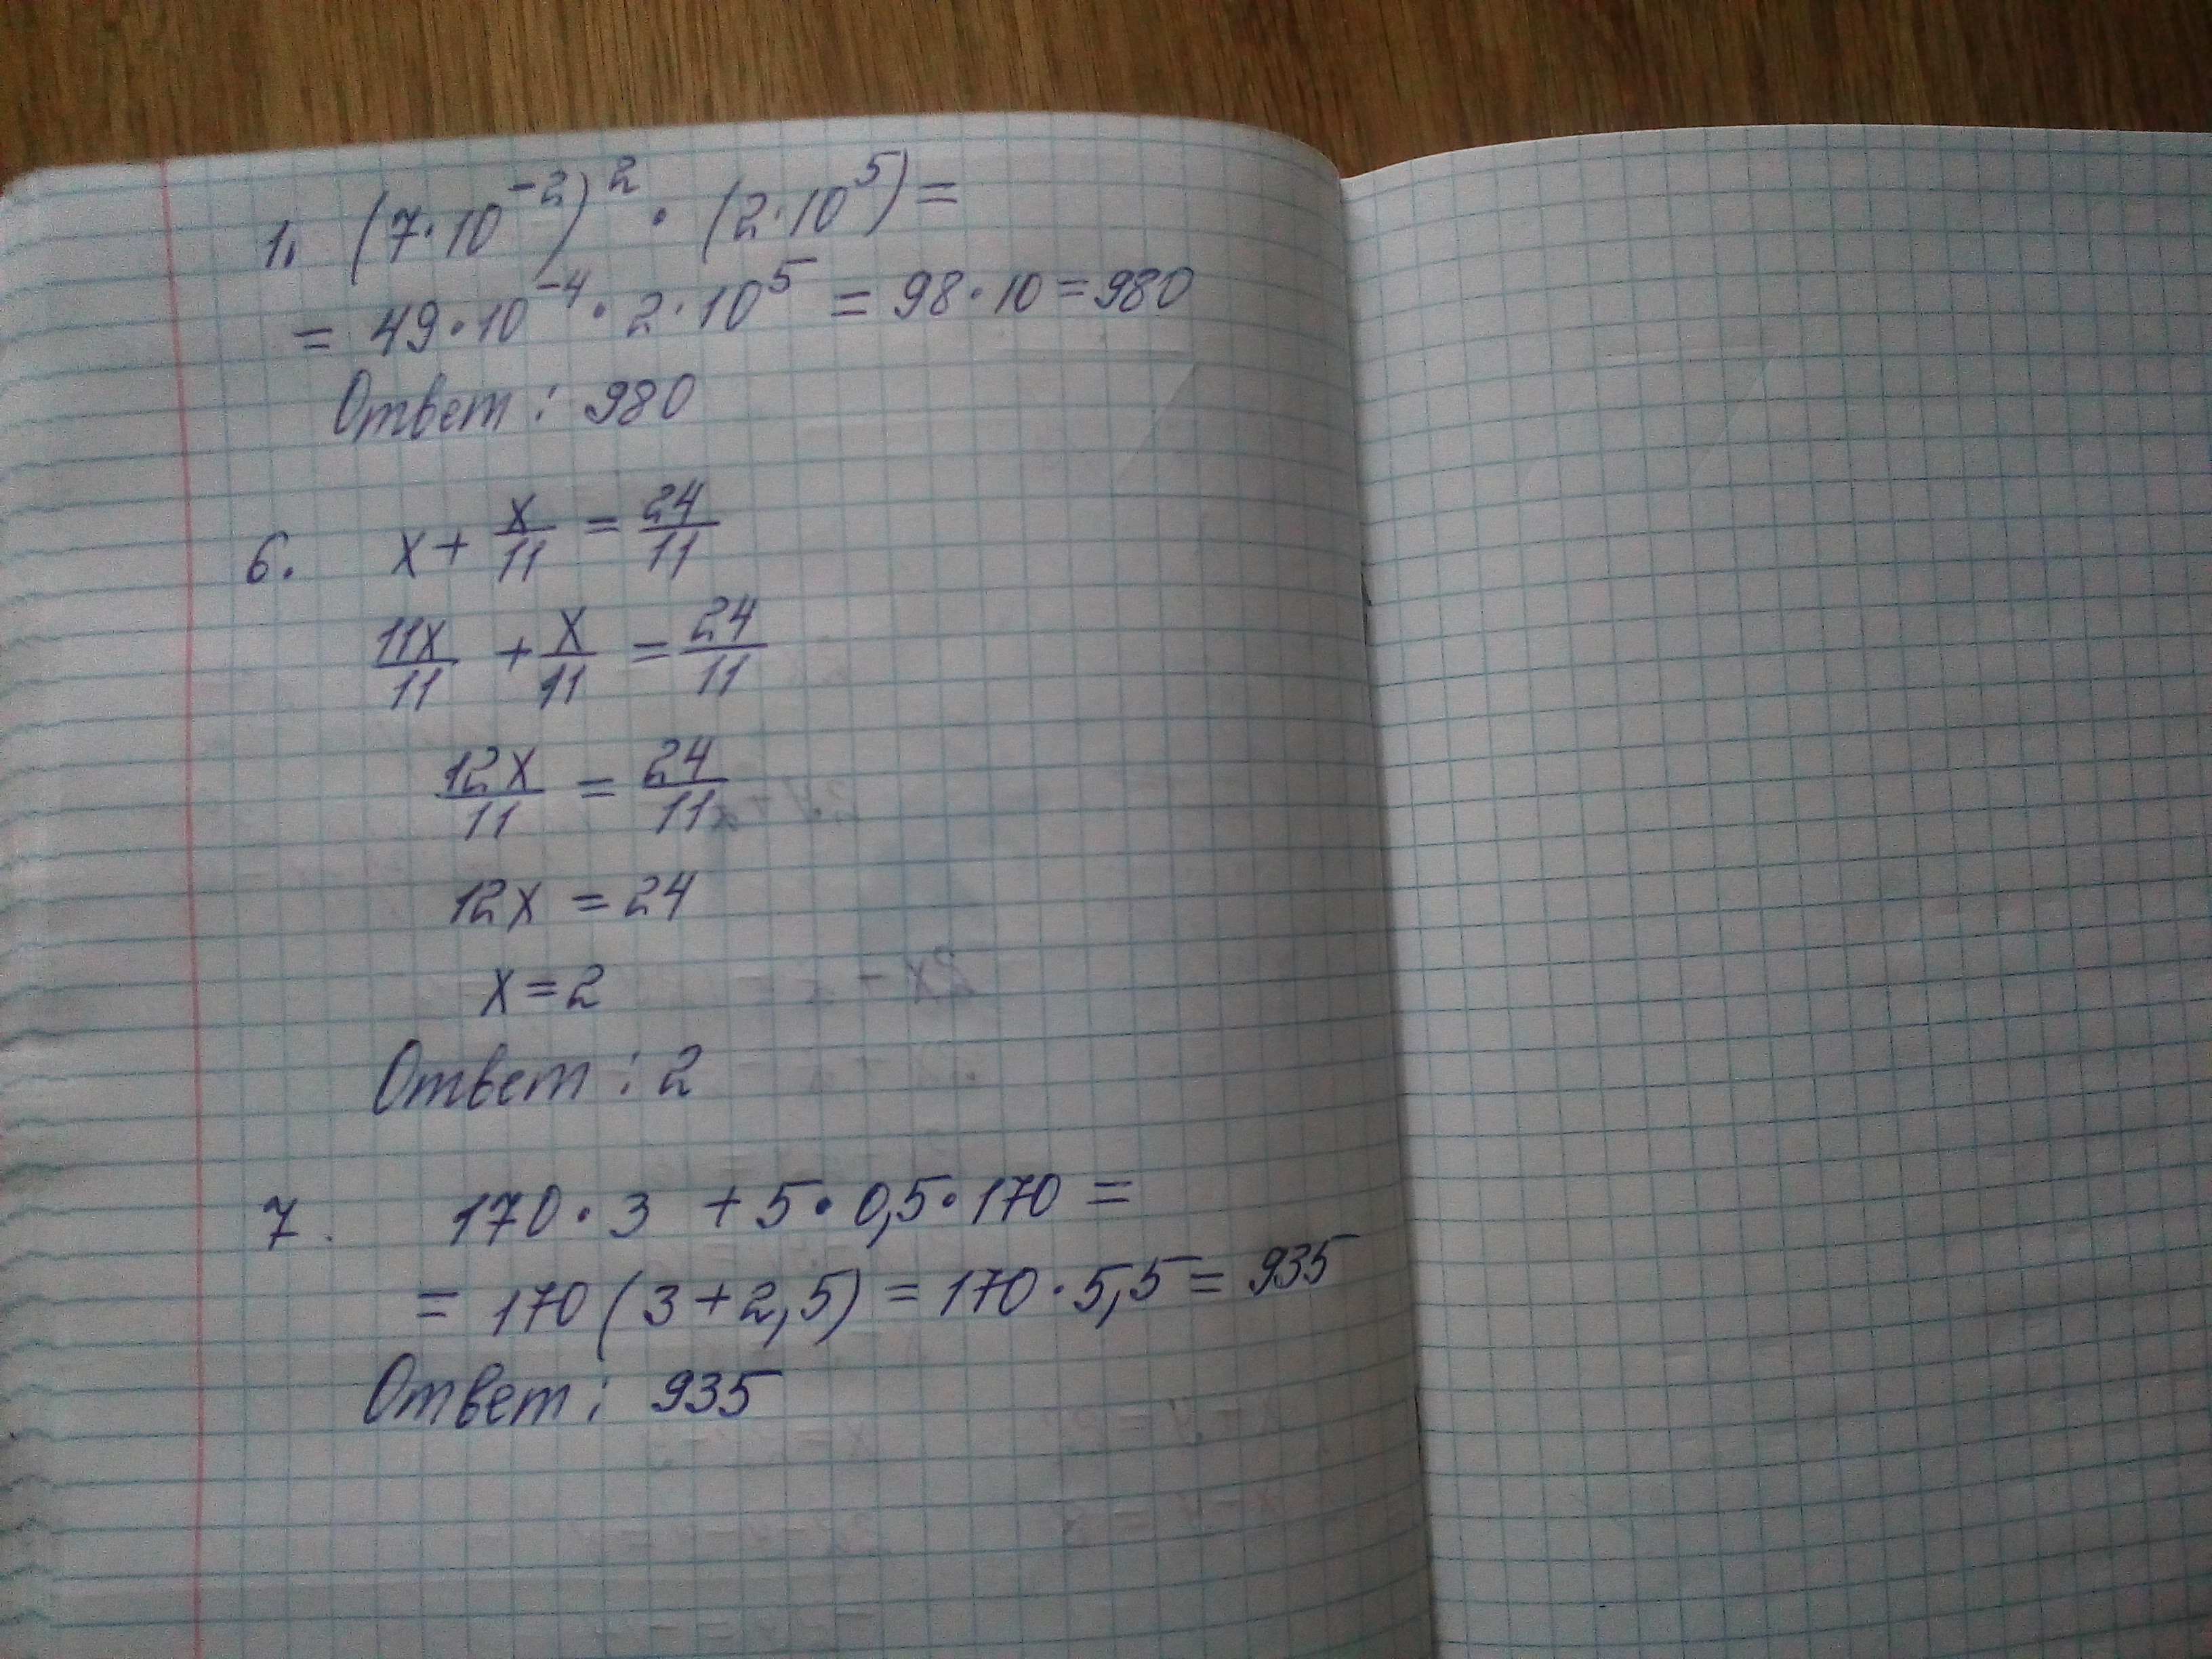 1. (7·10⁻²)² · (2·10⁵) =
= 49·10⁻⁴ · 2·10⁵ = 98·10 = 980
Ответ: 980
6. x + x/11 = 24/11
11x/11 + x/11 = 24/11
12x/11 = 24/11
12x = 24
x = 2
Ответ: 2
7. 170·3 + 5·0,5·170 =
= 170(3+2,5) = 170·5,5 = 935
Ответ: 935